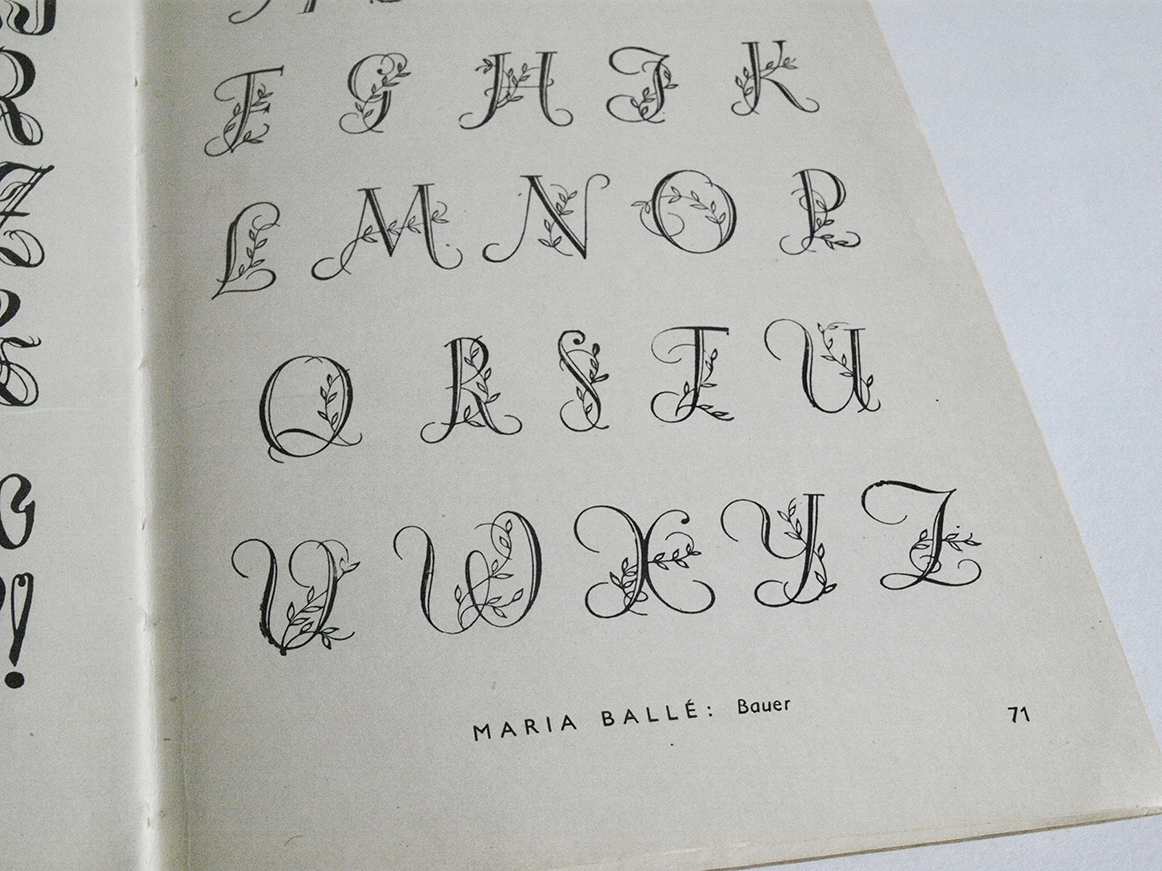 R
Z
!
F G H J K
L M N O P
Q R S T U
V W X Y Z
MARIA BALLÉ: Bauer
71